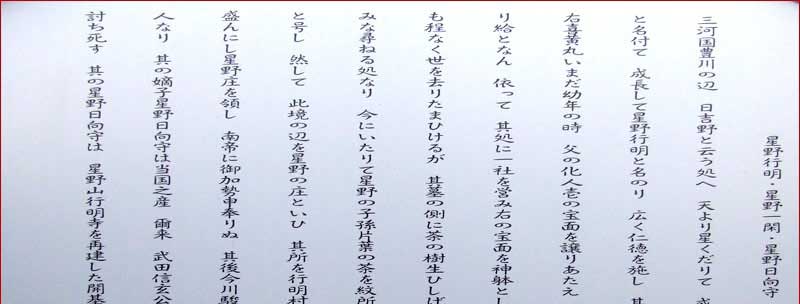 星野行明・星野一閑・星野日向守
三河国豊川の辺 日吉野と云う処へ 天より星くだりて
と名付て 成長して星野行明と名のり 広く仁徳を施し 其
右喜黄丸いまだ幼年の時 父の化人壱の宝面を譲りあたえ
り給となん 依って 其処に一社を営み右の宝面を神躰とし
も程なく世を去りたまひけるが 其墓の側に茶の樹生ひしげ
みな尋ねる処なり 今にいたりて星野の子孫片葉の茶を紋所
と号し 然して 此境の辺を星野の庄といひ 其所を行明村
盛んにし星野庄を領し 南帝に御加勢申奉りぬ 其後今川駿
人なり 其の嫡子星野日向守は当国之産 爾来 武田信玄公
討ち死す 其の星野日向守は 星野山行明寺を再建した開基